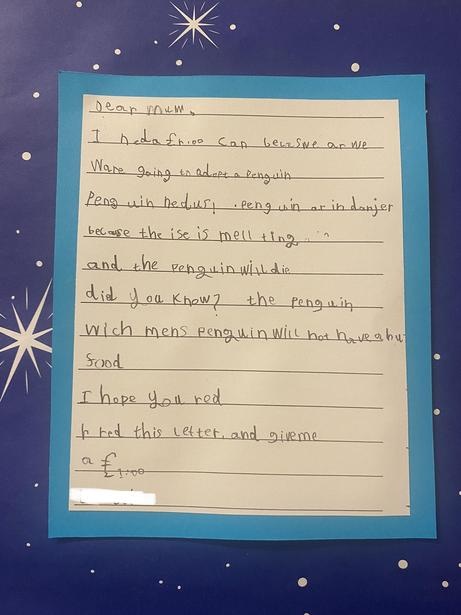 Dear mum,
I neda £1.00 Can becuse ar we
Ware going to adopt a Penguin
Penguin nedus! Penguin ar in danjer
because the ise is mellting
and the penguin will die
did you know? the penguin
wich mens penguin will not have
food
I hope you red
red this Letter, and giveme
a £1:00